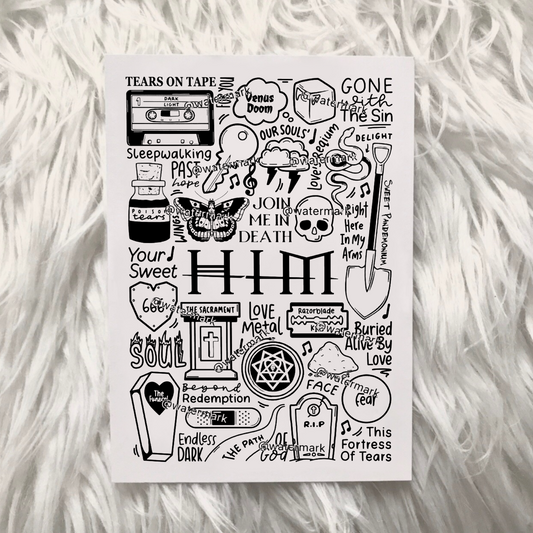 TEARS ON TAPE
YOU
Venus
Doom
GONE
with
The Sin
DARK
LIGHT
OUR SOULS'
Love's Requiem
DELIGHT
Sleepwalking
PAST
hope
POISON
tears
WINGS
JOIN
ME IN
DEATH
Right
Here
In My
Arms
SWEET PANDEMONIUM
Your
Sweet
666
HIM
THE SACRAMENT
LOVE
Metal
Razorblade
Buried
Alive By
Love
SOUL
The
Funeral
Beyond
Redemption
FACE
Fear
Endless
DARK
THE PATH
OF
God
R.I.P
This
Fortress
Of Tears
@watermark
@watermark
@watermark
@watermark
@watermark
@watermark
@watermark
@watermark
@watermark
@watermark